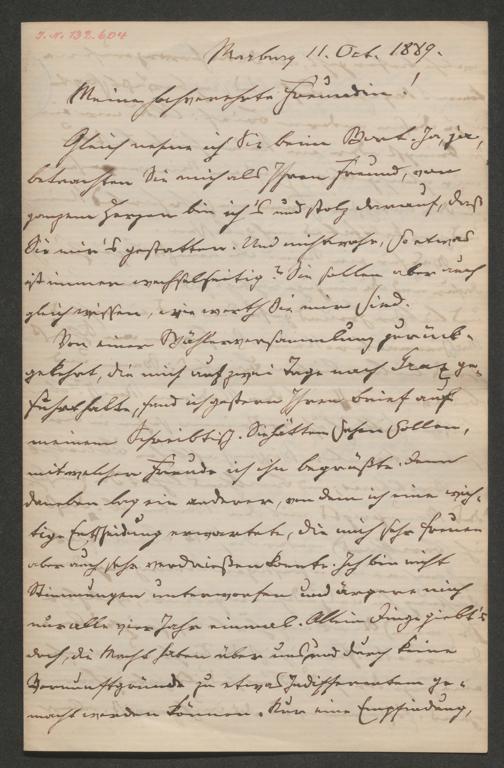 J. N. 132.604
Marburg 11. Oct. 1889.
Meine hochverehrte Freundin!
Gleich nehme ich Sie beim Wort. Ja, ja,
betrachten Sie mich als Ihren Freund, von
ganzem Herzen bin ich's und stolz darauf, daß
Sie mir's gestatten. Und nichtwahr, so etwas
ist immer wechselseitig? Sie sollen aber auch
gleich wissen, wie werth Sie mir sind.
Von einer Wählerversammlung zurück-
gekehrt, die mich auf zwei Tage nach Graz ge-
führt hatte, fand ich gestern Ihren Brief auf
meinem Schreibtisch. Sie hätten sehen sollen,
mit welcher Freude ich ihn begrüßte. Denn
daneben lag ein anderer, von dem ich eine wich-
tige Entscheidung erwartete, die mich sehr freuen
aber auch sehr verdrießen konte. Ich bin nicht
Stimmungen unterworfen und ärgere mich
nur alle vier Jahr einmal. Allein Dinge giebt's
doch, die Macht haben über uns und durch keine
Vernunftgründe zu etwas Indifferentem ge-
macht werden können. Nur eine Empfindung,